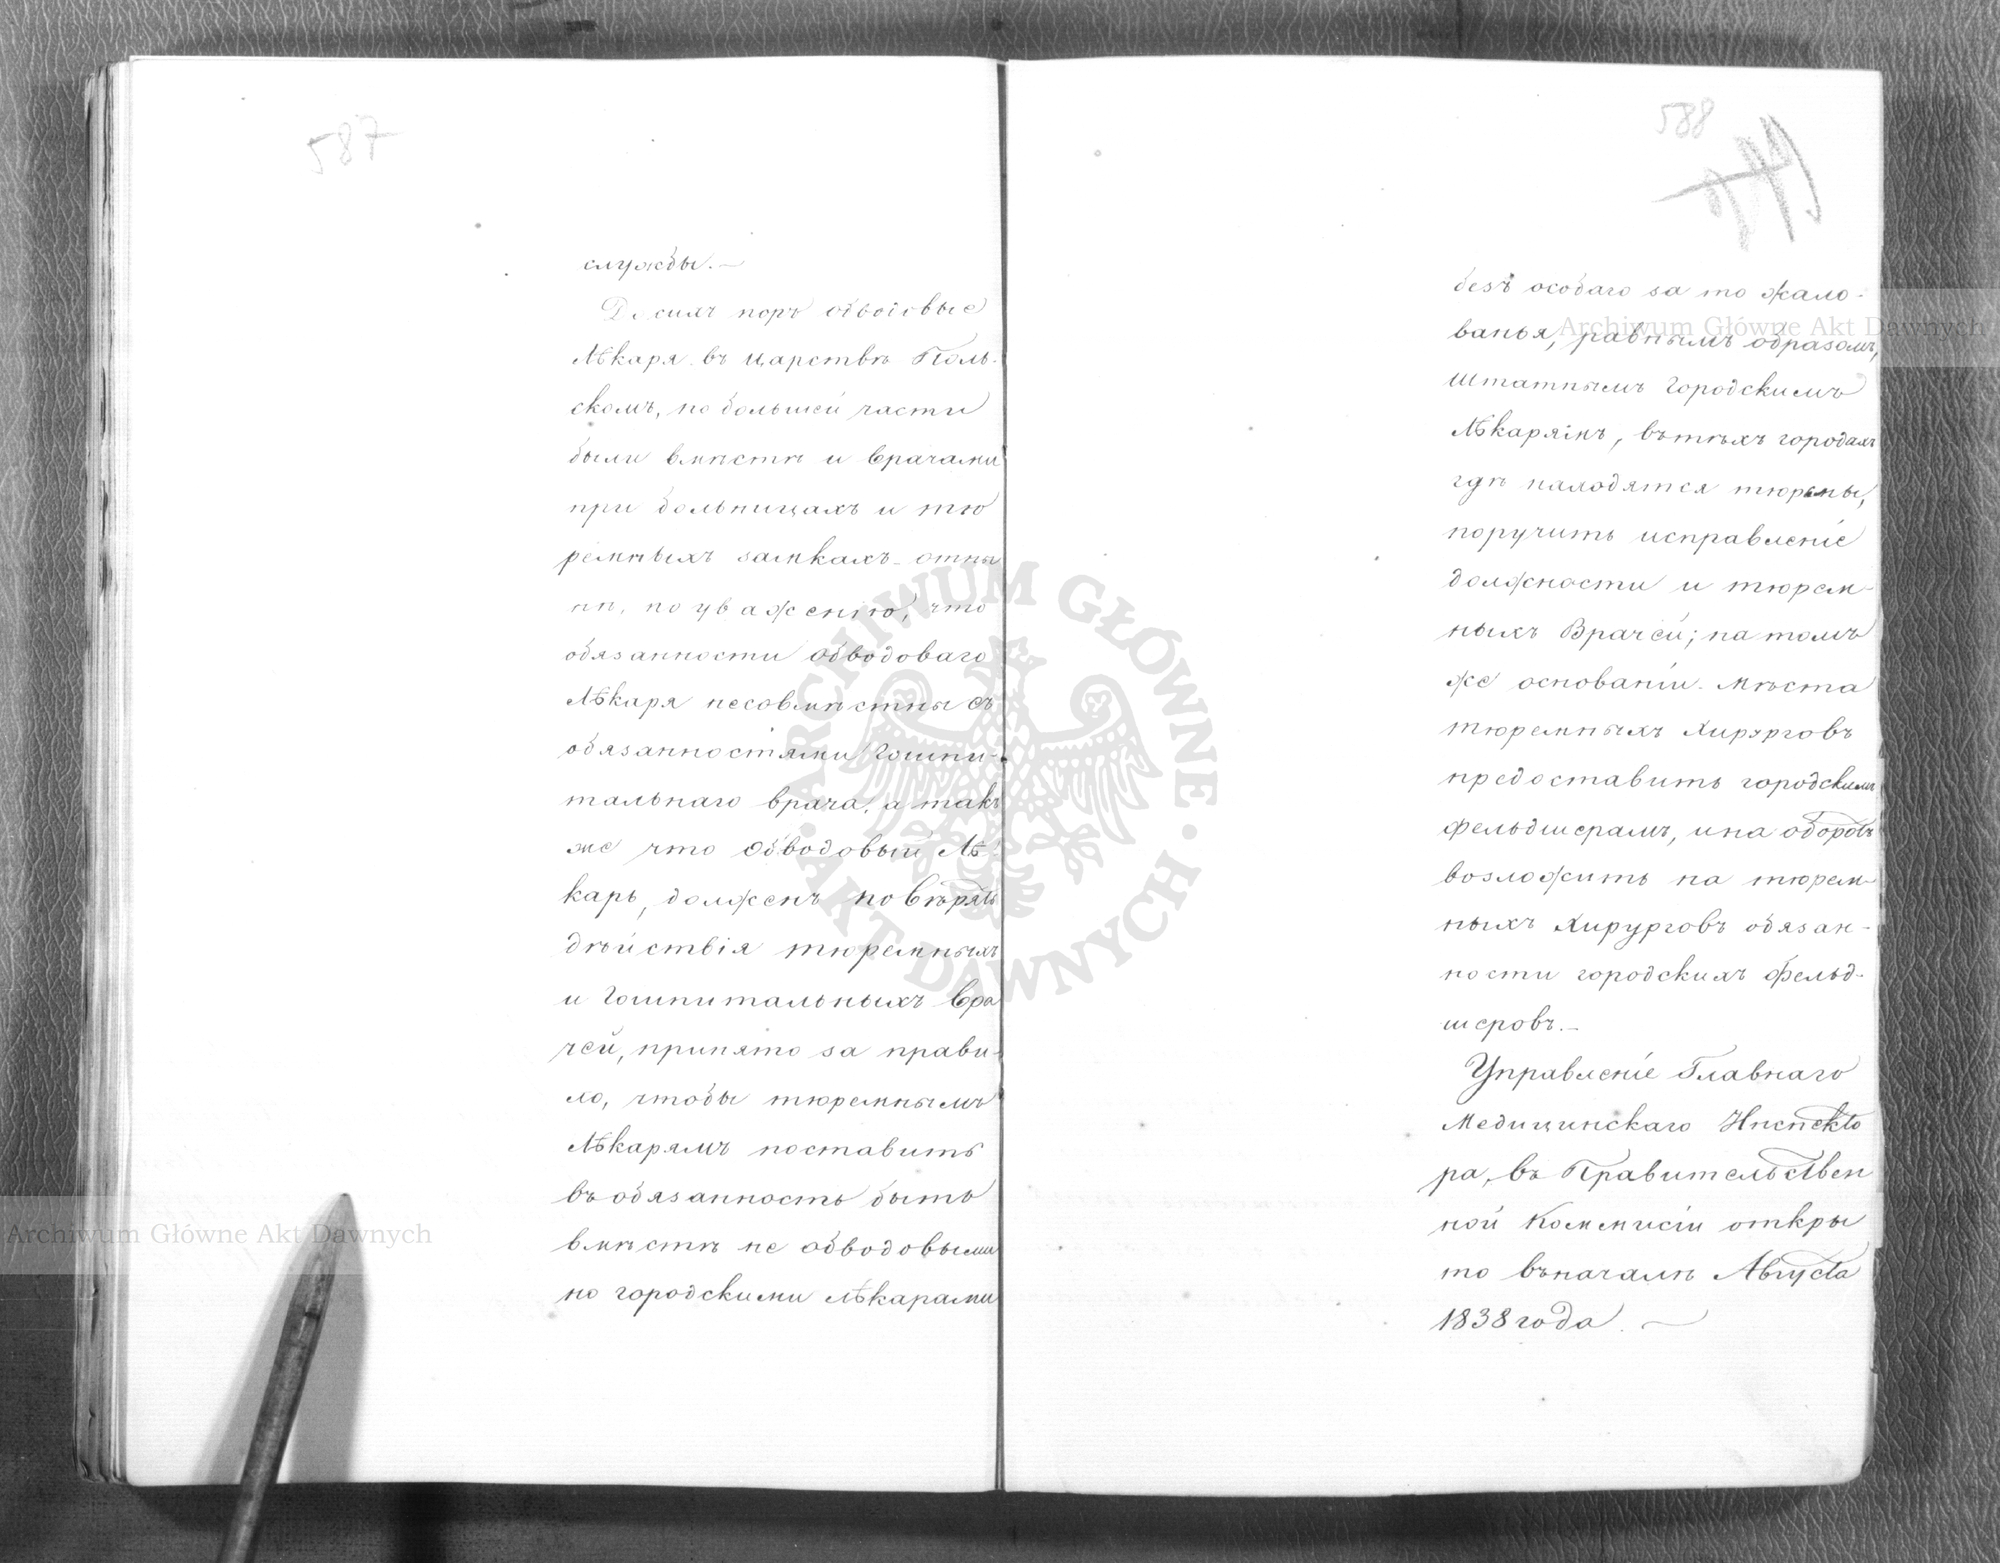 587
службы. —
До сихъ поръ обводовые
Лѣкаря въ царствѣ Поль-
скомъ, по большей части
были вмѣстѣ и врачами
при больницахъ и тю
ремныхъ замкахъ отны
нѣ, по уваженію, что
обязанности обводоваго
Лѣкаря несовмѣстны съ
обязанностями Гошпи-
тальнаго врача, а так
же что обводовый Лѣ-
карь, долженъ повѣрять
дѣйствія тюремныхъ
и Гошпитальныхъ вра
чей, принято за прави-
ло, чтобы тюремнымъ
Лѣкарямъ поставить
въ обязанность быть
вмѣстѣ не обводовыми
но городскими лѣкарами
588
безъ особаго за то жало-
ванья, равнымъ образомъ,
штатнымъ Городскимъ
Лѣкарямъ, въ тѣхъ городахъ
гдѣ находятся тюрьмы,
поручить исправленіе
должности и тюрем-
ныхъ Врачей; на томъ
же основаніи мѣста
тюремныхъ Хирурговъ
предоставить городскимъ
фельдшерамъ, и на оборотъ
возложить на тюрем-
ныхъ Хирурговъ обязан-
ности городскихъ фельд-
шеровъ. —
Управленіе Главнаго
Медицинскаго Инспекто
ра, въ Правительствен
ной Коммисіи откры
то въ началѣ Августа
1838 года. —
Archiwum Główne Akt Dawnych
Archiwum Główne Akt Dawnych
ARCHIWUM GŁÓWNE · AKT DAWNYCH ·